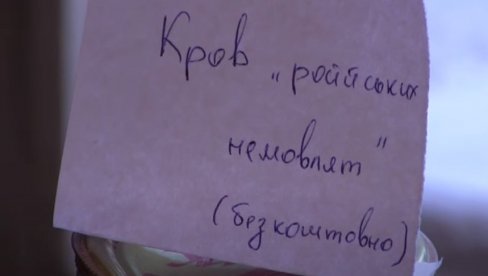 Кров „ройських
немовлят"
(безкоштовно)